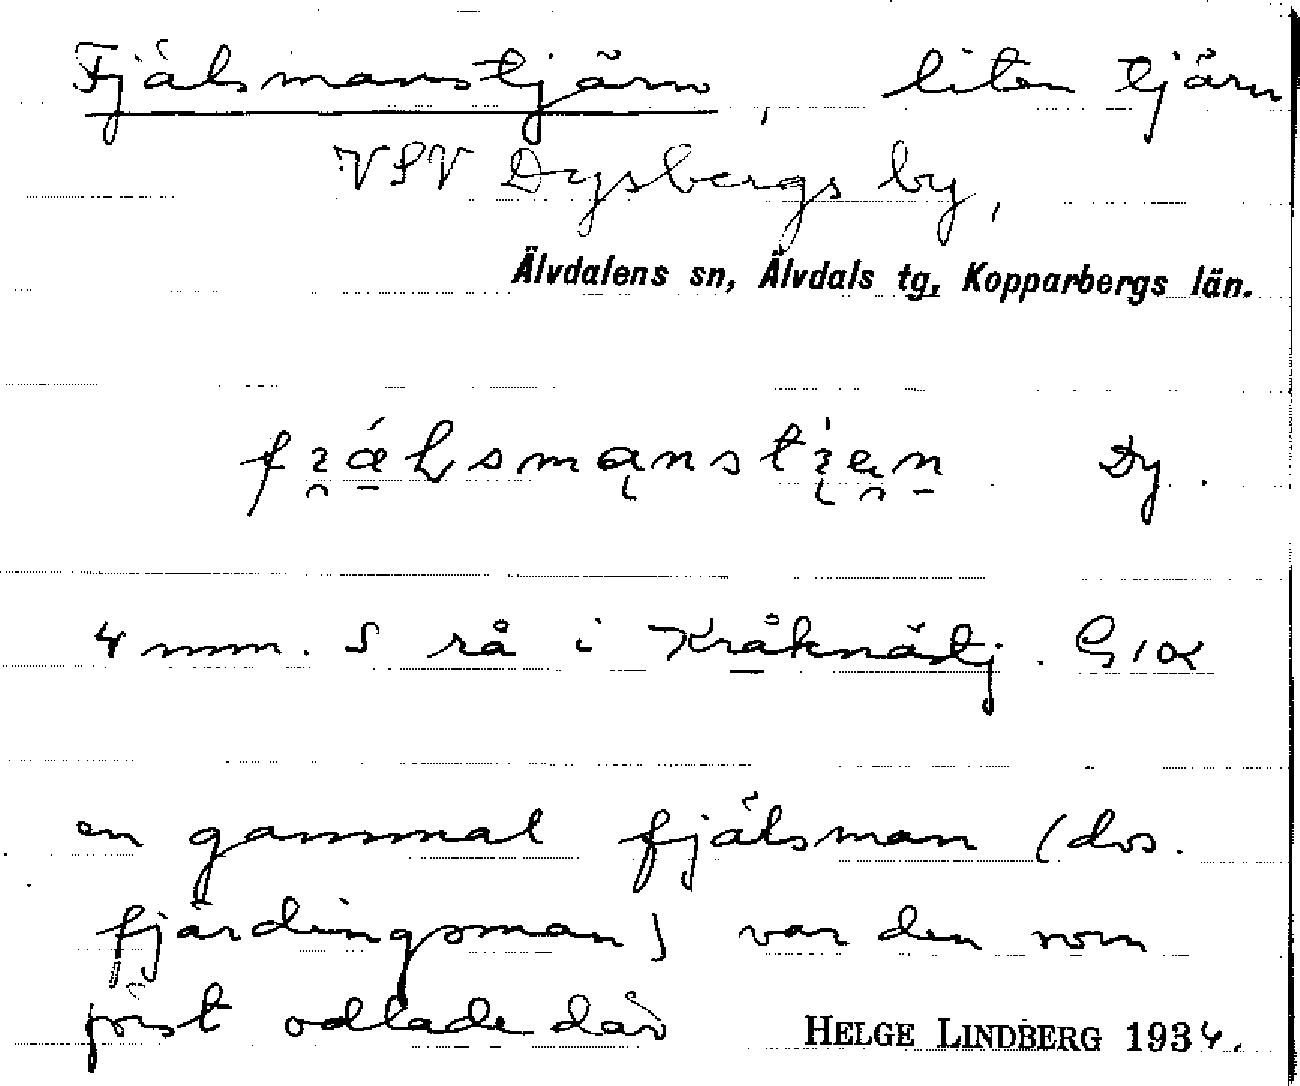 Fjälsmanstjärn, liten tjärn
VSV Dysbergs by,
Älvdalens sn, Älvdals tg, Kopparbergs län.
Dy.
4 mm. S rå i Kråknästj. G1α
en gammal fjälsman (dvs.
fjärdingsman) var den som
först odlade där
HELGE LINDBERG 1934.